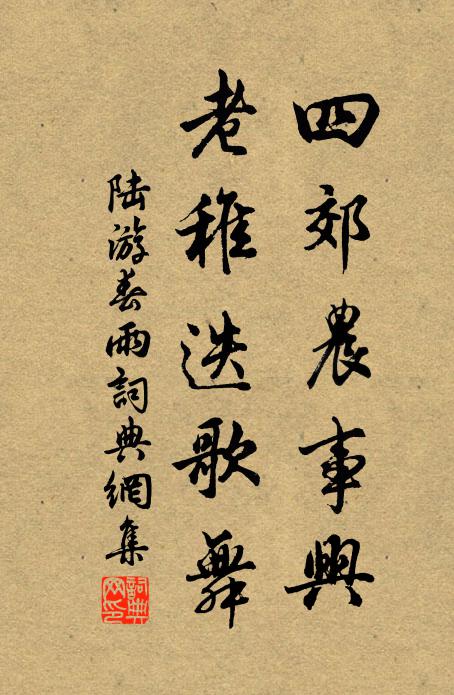 四郊農事興
老稚迭歌舞
陆游春雨詞典網集
詞典網印